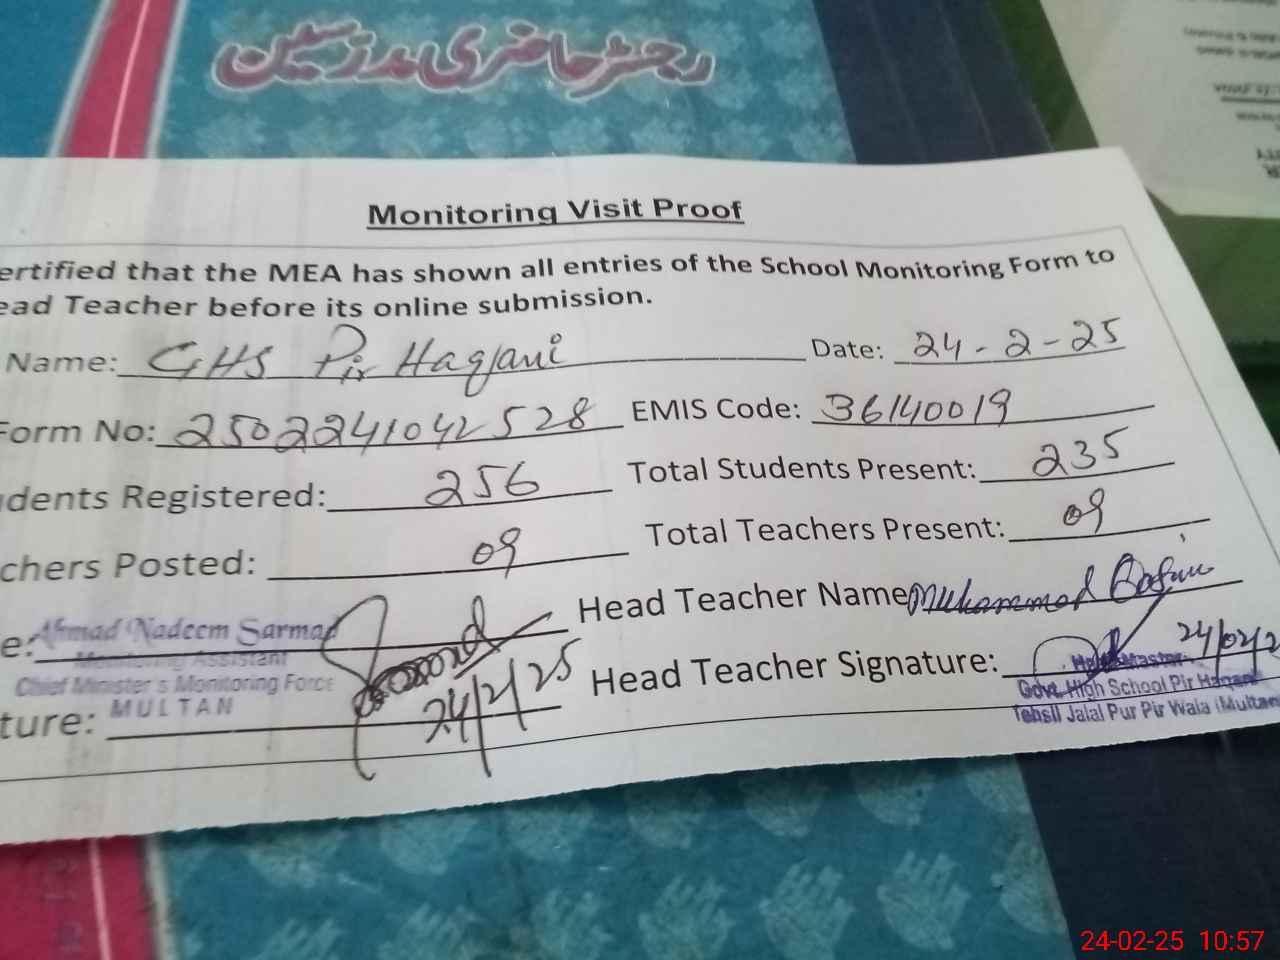 رجسٹر حاضری مدرسین
Monitoring Visit Proof
ertified that the MEA has shown all entries of the School Monitoring Form to
ead Teacher before its online submission.
Name: GHS Pir Haqani Date: 24-2-25
Form No: 2502241042528 EMIS Code: 36140019
dents Registered: 256 Total Students Present: 235
chers Posted: 09 Total Teachers Present: 09
e: Ahmad Nadeem Sarmad Head Teacher Name Muhammad
Monitoring Assistant
Chief Minister's Monitoring Force
MULTAN
ture: 24/2/25 Head Teacher Signature: 24/02/2
Head Master
Govt. High School Pir Haqani
Tehsil Jalal Pur Pir Wala (Multan
24-02-25 10:57